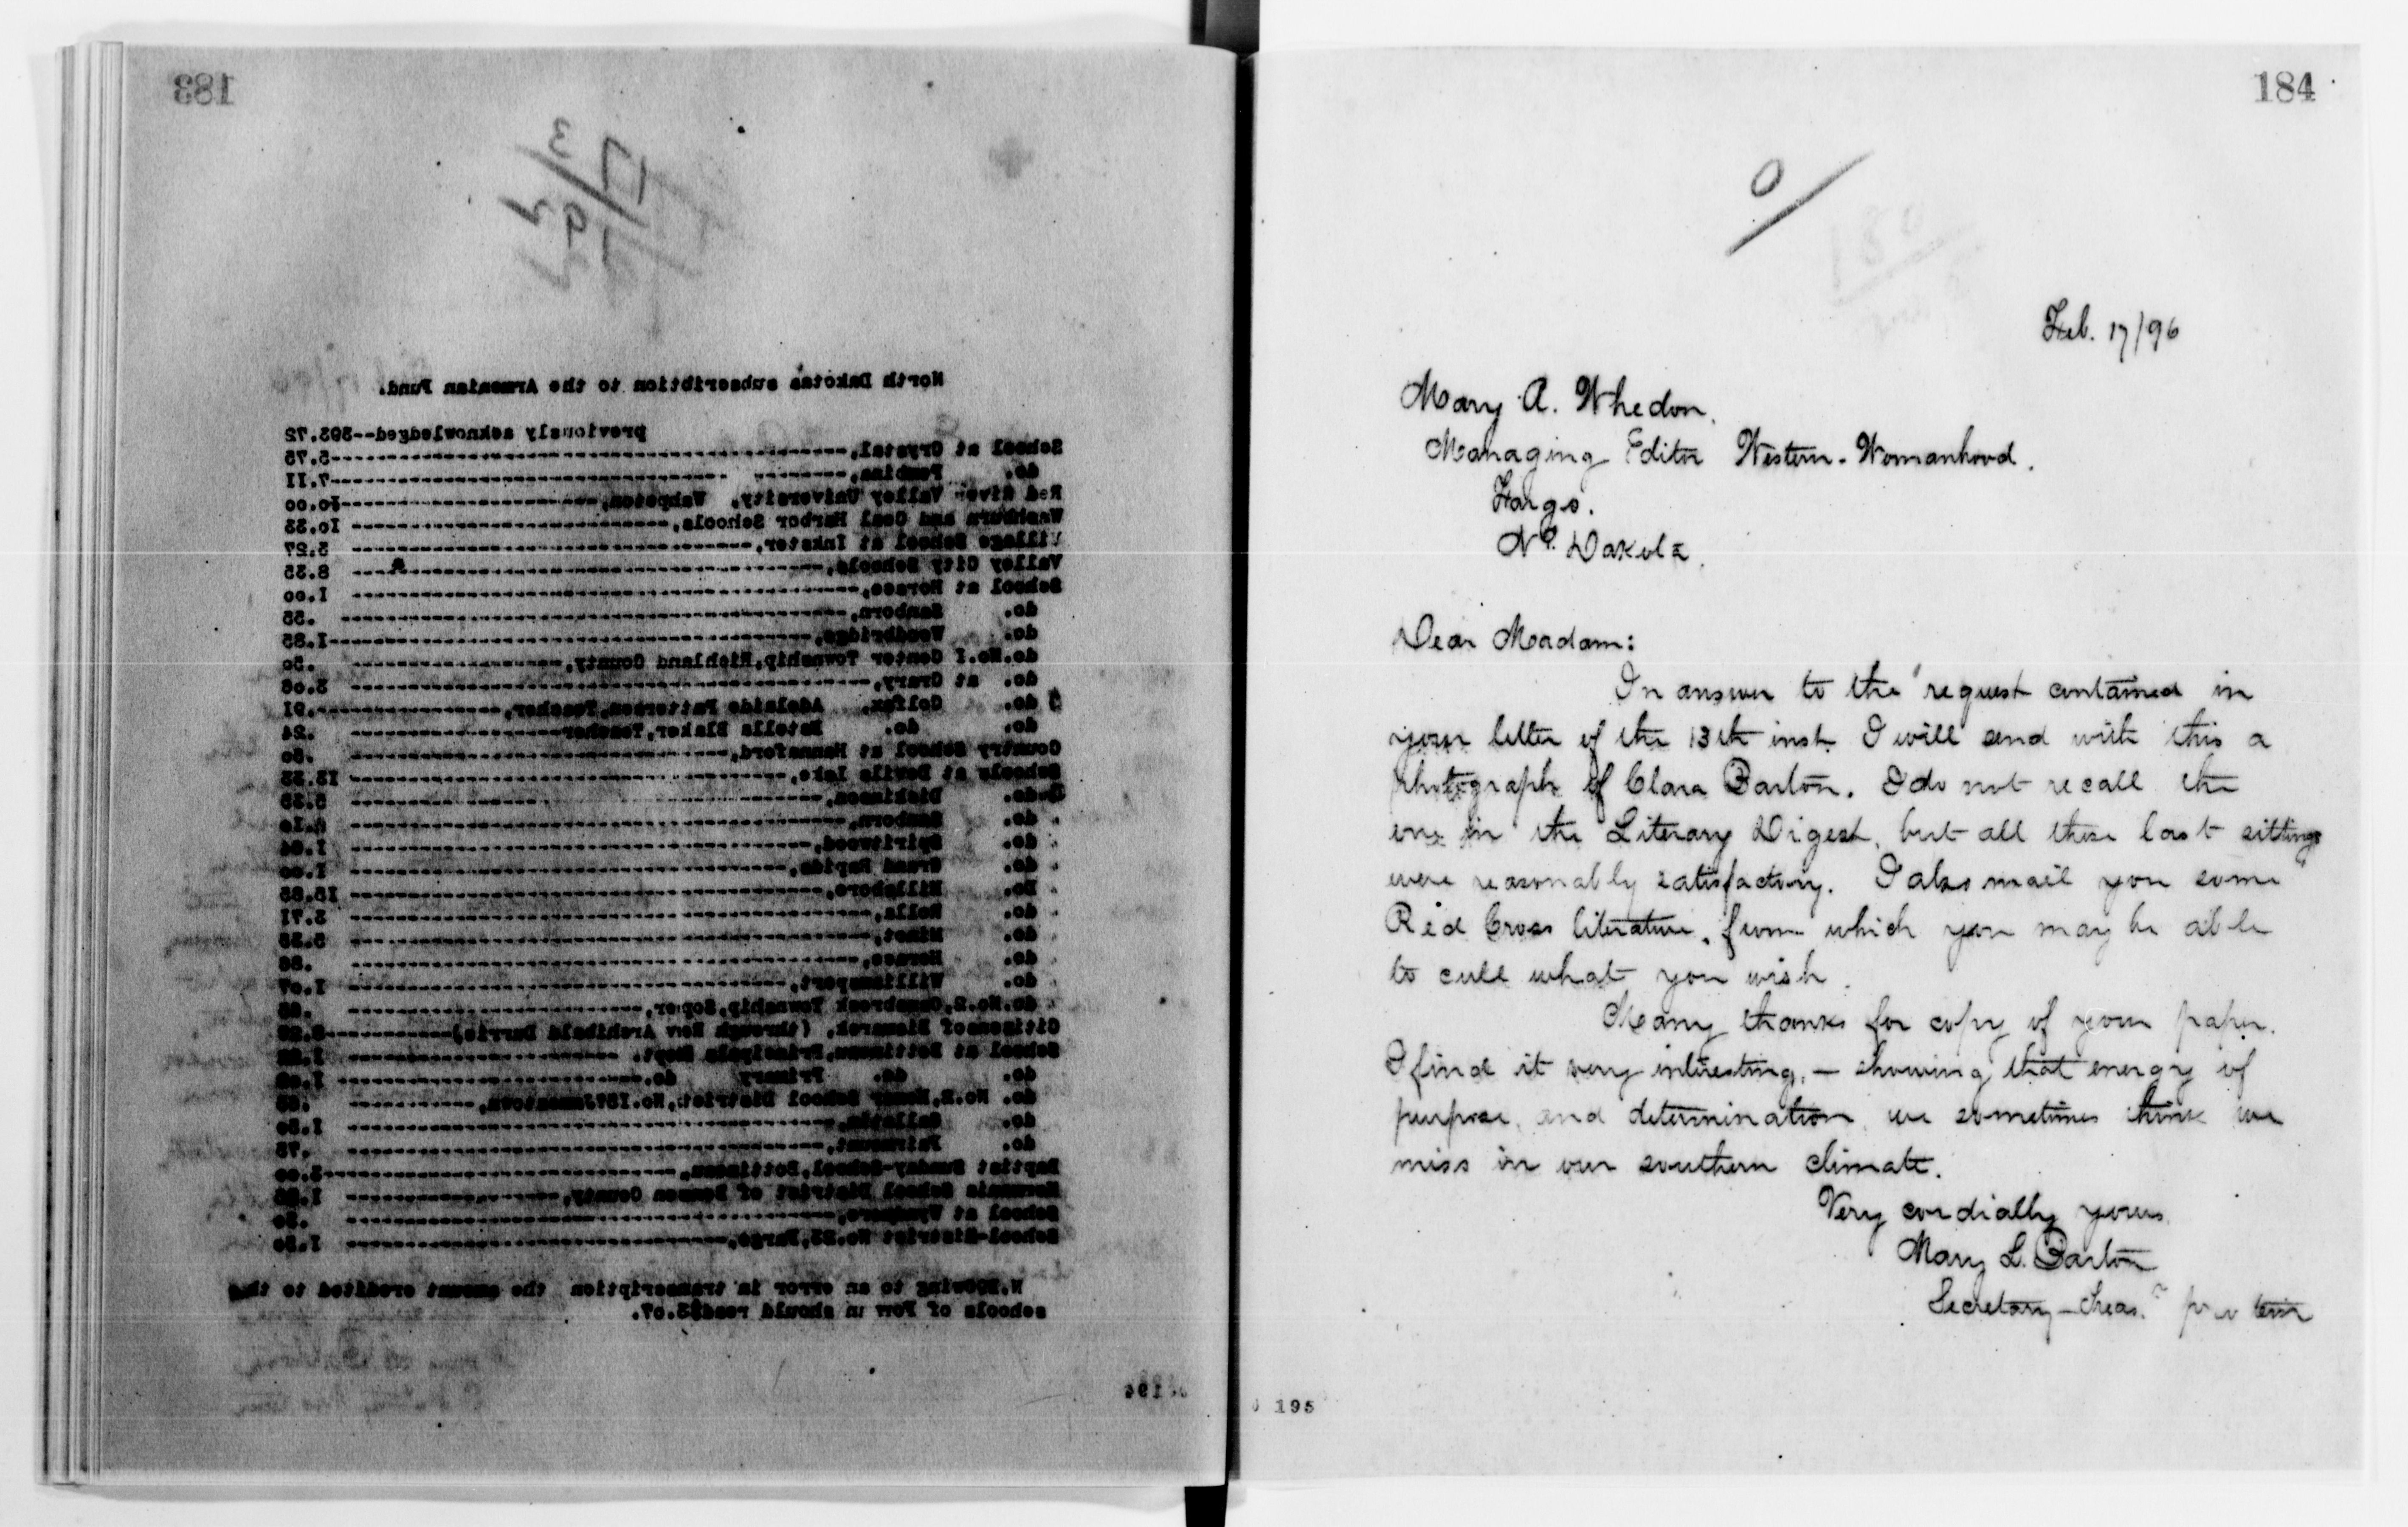 183
North Dakotas subscribtion to the Armenian Fund.
previously acknowledged--393.72
School at Crystal,-----5.75
do. Pembina,-----7.II
Red River Valley University, Wahpeton,-----oo.oo
Washburn and Coal Harbor Schools,-----Io.33
Village School at Inkster,-----3.27
Valley City Schools,-----8.35
School at Horace,-----I.oo
do. Sanborn,-----.55
do. Woodbridge,-----I.85
do.No.I Center Township,Richland County,-----.5o
do. at Crary,-----3.o6
do. Colfax, Adelaide Patterson,Teacher,-----.9I
do. do. Estella Blaker,Teacher-----.24
Country School at Hannaford,-----.5o
Schools at Devils Lake,-----I3.33
do. Dickinson,-----5.35
do. Sanborn,-----
do. Spiritwood,-----I.04
do. Grand Rapids,-----I.oo
Do. Hillsboro,-----I5.85
do. Rolla,-----3.7I
do. Minot,-----5.35
do. Horace,-----
do. Williamsport,-----I.o7
do.No.2,Township,Soper,-----
Citizens of Bismarck, (through Rev Archibald Durrie)-----
School at Bottineau,Principals Dept.-----
do. do. Primary do.-----
do. School District,No.Jamestown,-----
do.-----I.5o
do. Fairmount,-----.75
Baptist Sunday-School,Bottineau,-----3.oo
School District of Benson County,-----
School at Wyndmere,-----.5o
School-District No.23,Fargo,-----I.5o
N.B.owing to an error in transcription the amount credited to the
schools of should read$3.o7.
194
184
0
Feb. 17/96
Mary A. Whedon.
Managing Editor Western-Womanhood.
Fargo.
No. Dakota.
Dear Madam:
In answer to the request contained in
your letter of the 13th inst. I will send with this a
photograph of Clara Barton. I do not recall the
one in the Literary Digest, but all these last sittings
were reasonably satisfactory. I also mail you some
Red Cross literature, from which you may be able
to cull what you wish.
Many thanks for copy of your paper.
I find it very interesting, — showing that energy of
purpose, and determination we sometimes think we
miss in our southern climate.
Very cordially yours
Mary L. Barton
Secretary-Treas.r pro tem
195